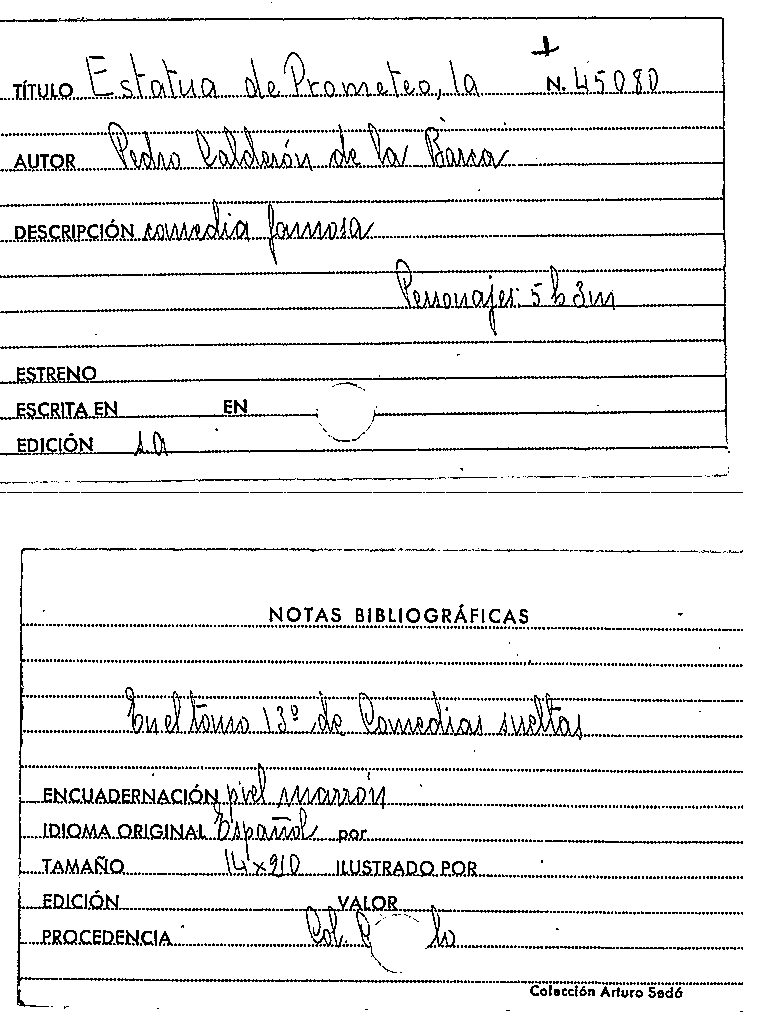 TÍTULO Estatua de Prometeo, la N. 45080
AUTOR Pedro Calderón de la Barca
DESCRIPCIÓN comedia famosa
Personajes: 5 h 3 m
ESTRENO
ESCRITA EN EN
EDICIÓN s.a
NOTAS BIBLIOGRÁFICAS
En el tomo 13º de Comedias sueltas
ENCUADERNACIÓN piel marrón
IDIOMA ORIGINAL Español por
TAMAÑO ILUSTRADO POR
EDICIÓN VALOR
PROCEDENCIA Col.
Colección Arturo Sedó